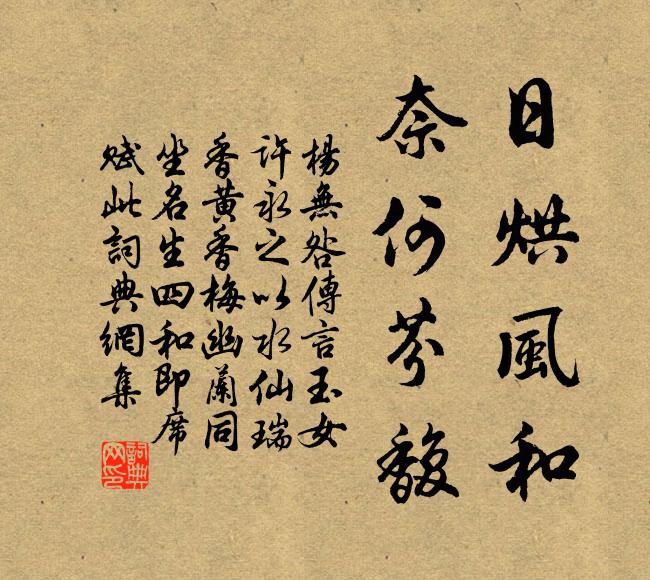 日烘風和
奈何芬馥
楊無咎傳言玉女
許永之以水仙瑞
香黃香梅幽蘭同
坐名生四和即席
賦此詞典網集
詞典网印